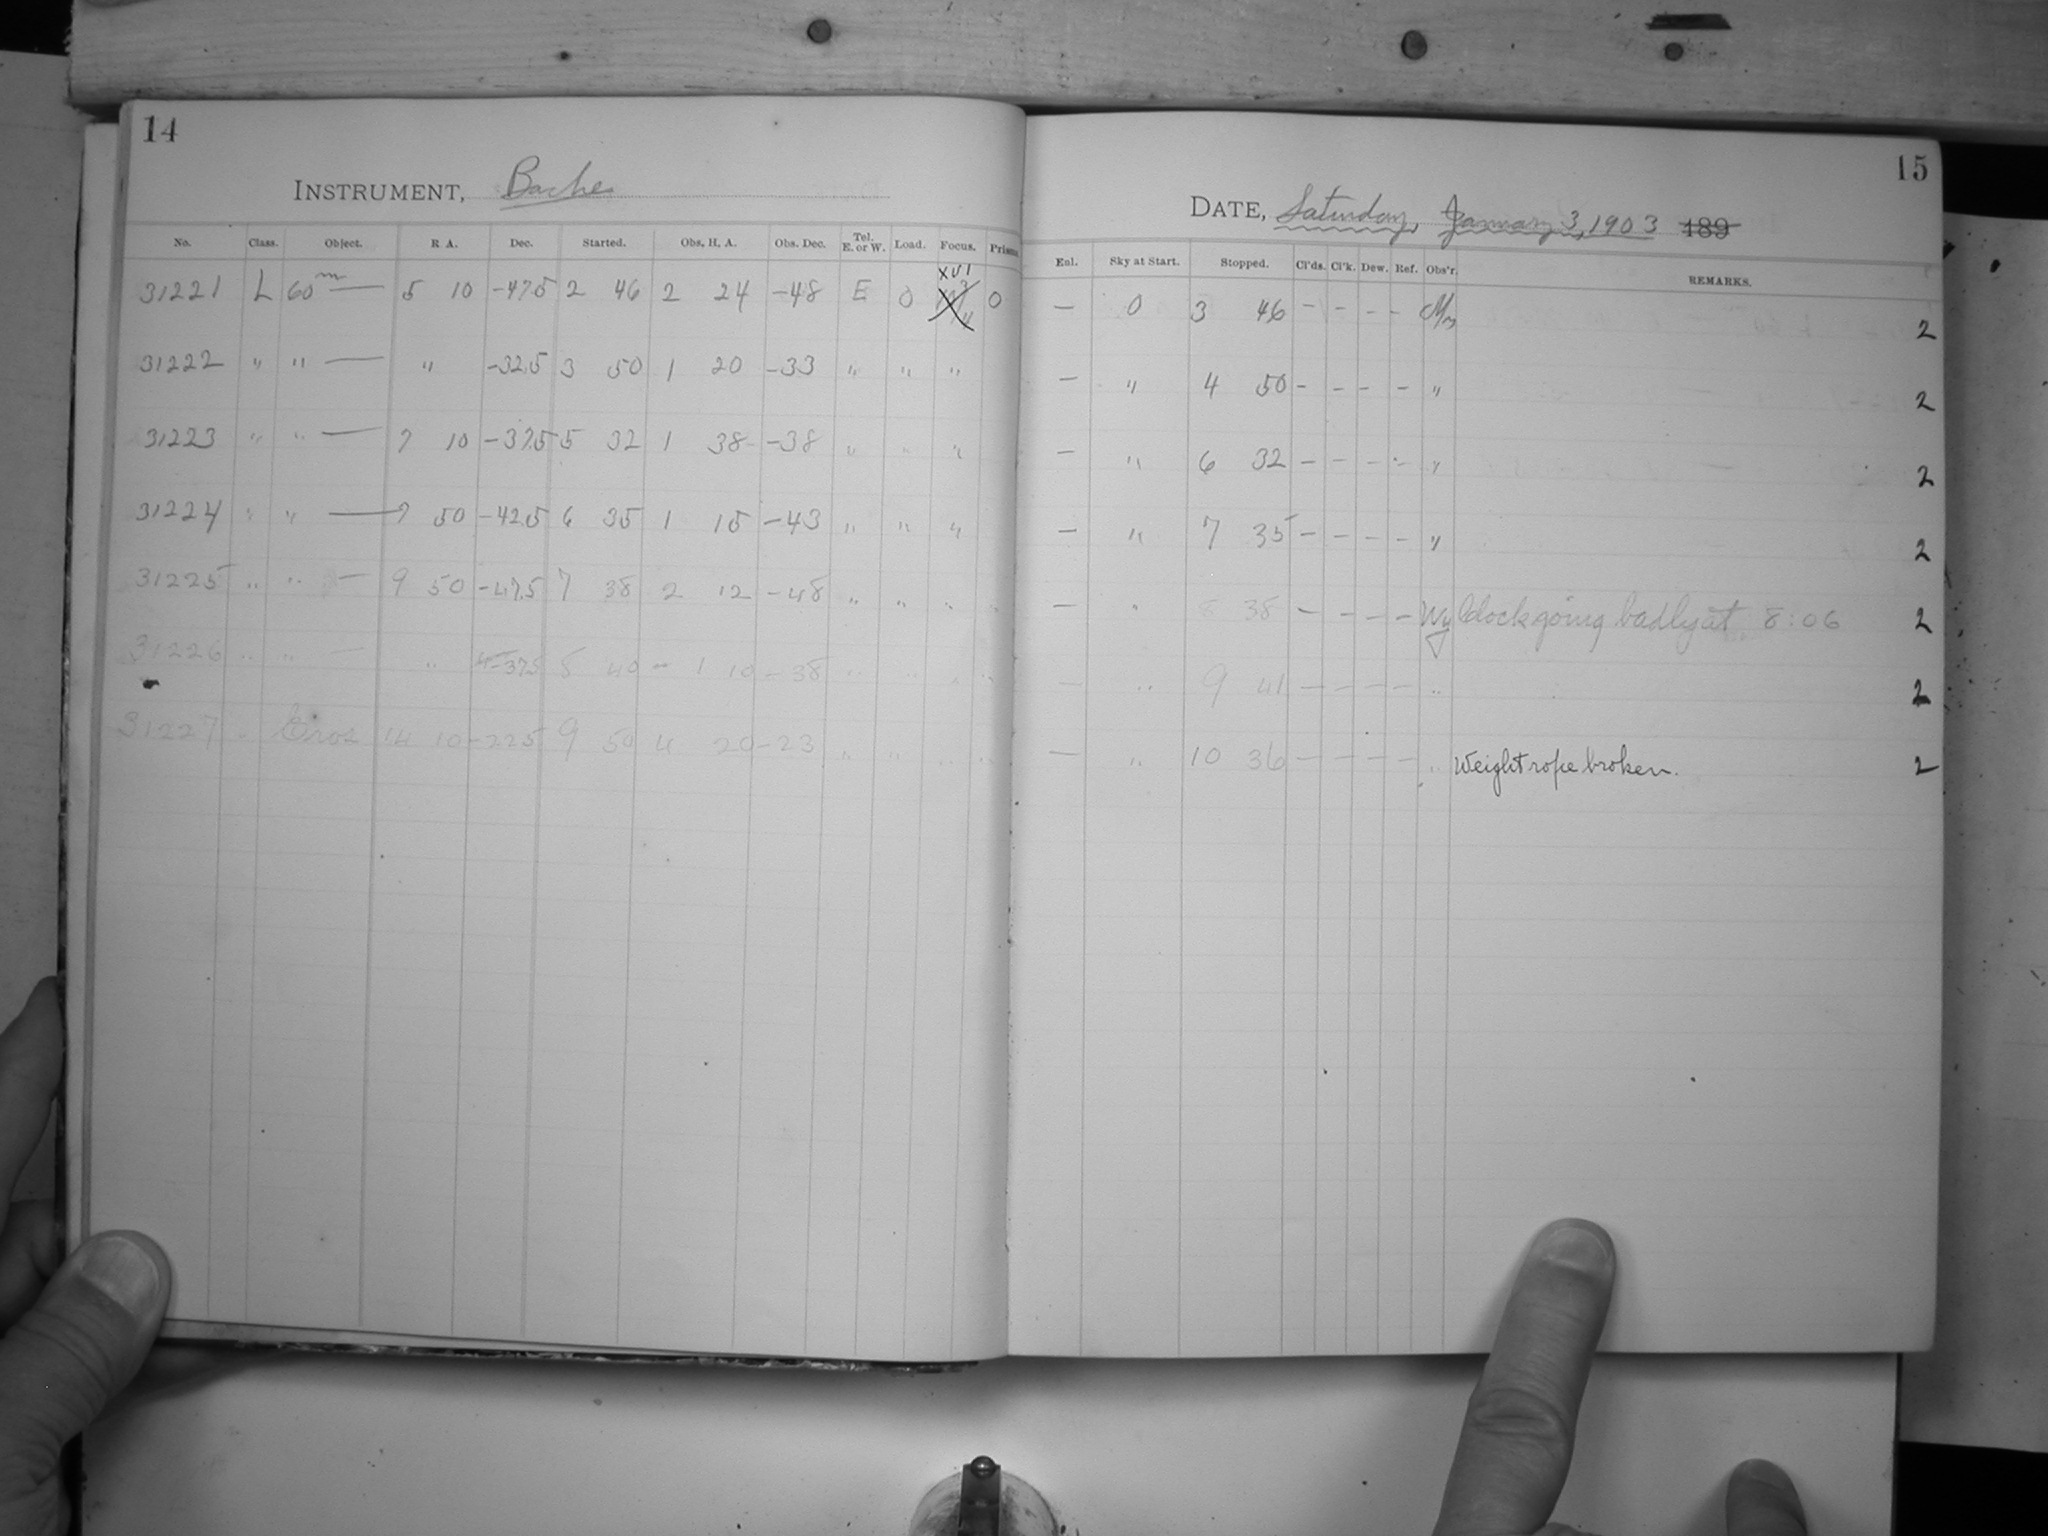 14
INSTRUMENT, Bache
No. Class. Object. R A. Dec. Started. Obs. H. A. Obs. Dec. Tel. E. or W. Load. Focus. Prism.
31221 L 60m — 5 10 -47.5 2 46 2 24 -48 E 0 XVI 0
31222 " " — " -32.5 3 50 1 20 -33 " " "
31223 " " — 7 10 -37.5 5 32 1 38 -38 " " "
31224 " " — 7 50 -42.5 6 35 1 15 -43 " " "
31225 " " — 9 50 -47.5 7 38 2 12 -48 " " " "
31226 " " — " -37.5 8 40 - 1 10 -38 " " " "
31227 - Eros 14 10 -22.5 9 50 4 20 -23 " " " "
15
DATE, Saturday, January 3, 1903 189
Enl. Sky at Start. Stopped. Cl'ds. Cl'k. Dew. Ref. Obs'r. REMARKS.
— 0 3 46 - - - - 2
— " 4 50 - - - - " 2
— " 6 32 - - - - " 2
— " 7 35 - - - - " 2
— " 8 38 - - - - Wy Clock going badly at 8:06 2
— " 9 41 - - - - " 2
— " 10 36 - - - - " Weight rope broken. 2